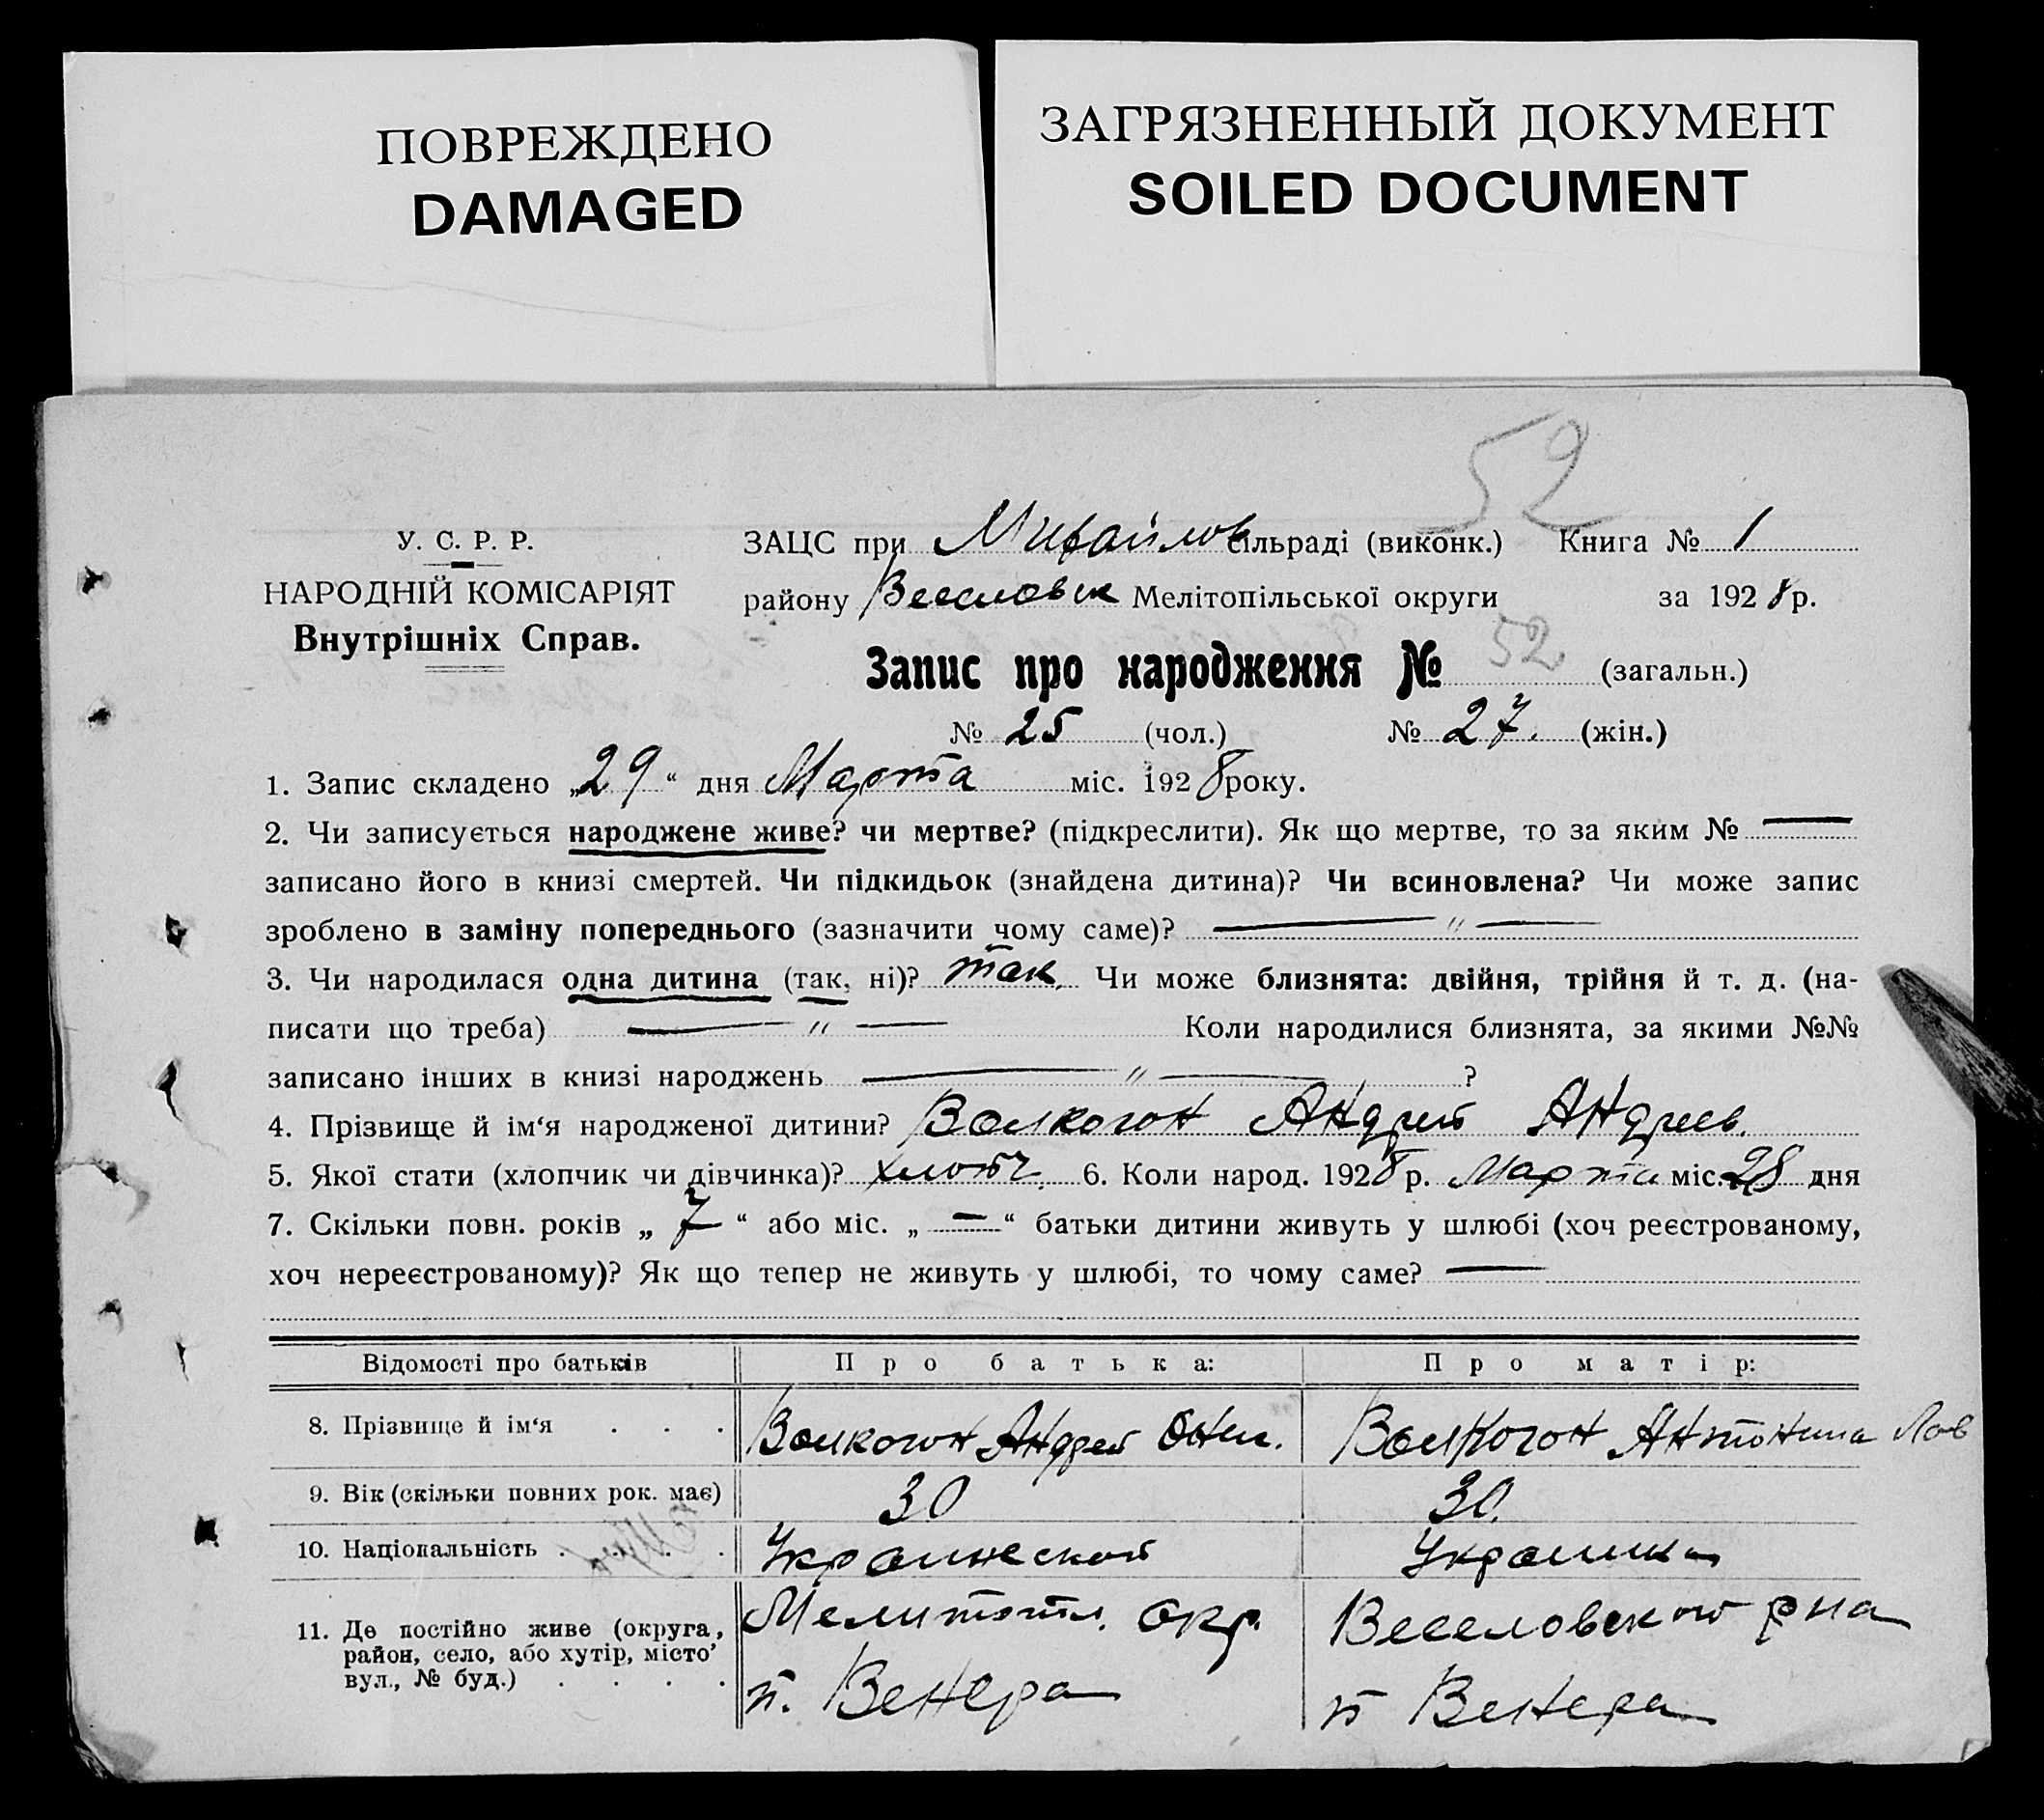 ПОВРЕЖДЕНО
DAMAGED
ЗАГРЯЗНЕННЫЙ ДОКУМЕНТ
SOILED DOCUMENT
52
У. С. Р. Р.
НАРОДНІЙ КОМІСАРІЯТ
Внутрішніх Справ.
ЗАЦС при Михайлов сільраді (виконк.) Книга № 1
району Веселовск Мелітопільської округи за 1928 р.
Запис про народження № 52 (загальн.)
№ 25 (чол.) № 27. (жін.)
1. Запис складено „29“ дня Марта міс. 1928 року.
2. Чи записується народжене живе? чи мертве? (підкреслити). Як що мертве, то за яким № —
записано його в книзі смертей. Чи підкидьок (знайдена дитина)? Чи всиновлена? Чи може запис
зроблено в заміну попереднього (зазначити чому саме)? — „ —
3. Чи народилася одна дитина (так, ні)? так. Чи може близнята: двійня, трійня й т. д. (на-
писати що треба) — „ — Коли народилися близнята, за якими №№
записано інших в книзі народжень — „ — ?
4. Прізвище й ім‘я народженої дитини? Волкогон Андрей Андреев.
5. Якої стати (хлопчик чи дівчинка)? хлопч. 6. Коли народ. 1928 р. Марта міс. 28 дня
7. Скільки повн. років „ 7 “ або міс. „ — “ батьки дитини живуть у шлюбі (хоч реєстрованому,
хоч нереєстрованому)? Як що тепер не живуть у шлюбі, то чому саме? —
Відомості про батьків Про батька: Про матір:
8. Прізвище й ім‘я . . . Волкогон Андрей Волкогон Антонина
9. Вік (скільки повних рок. має) 30 30.
10. Національність . . . . Украинской Украинка
11. Де постійно живе (округа, район, село, або хутір, місто вул., № буд.) . . . .
Мелитопл. окр.
п. Венера
Веселовского рна
п Венера